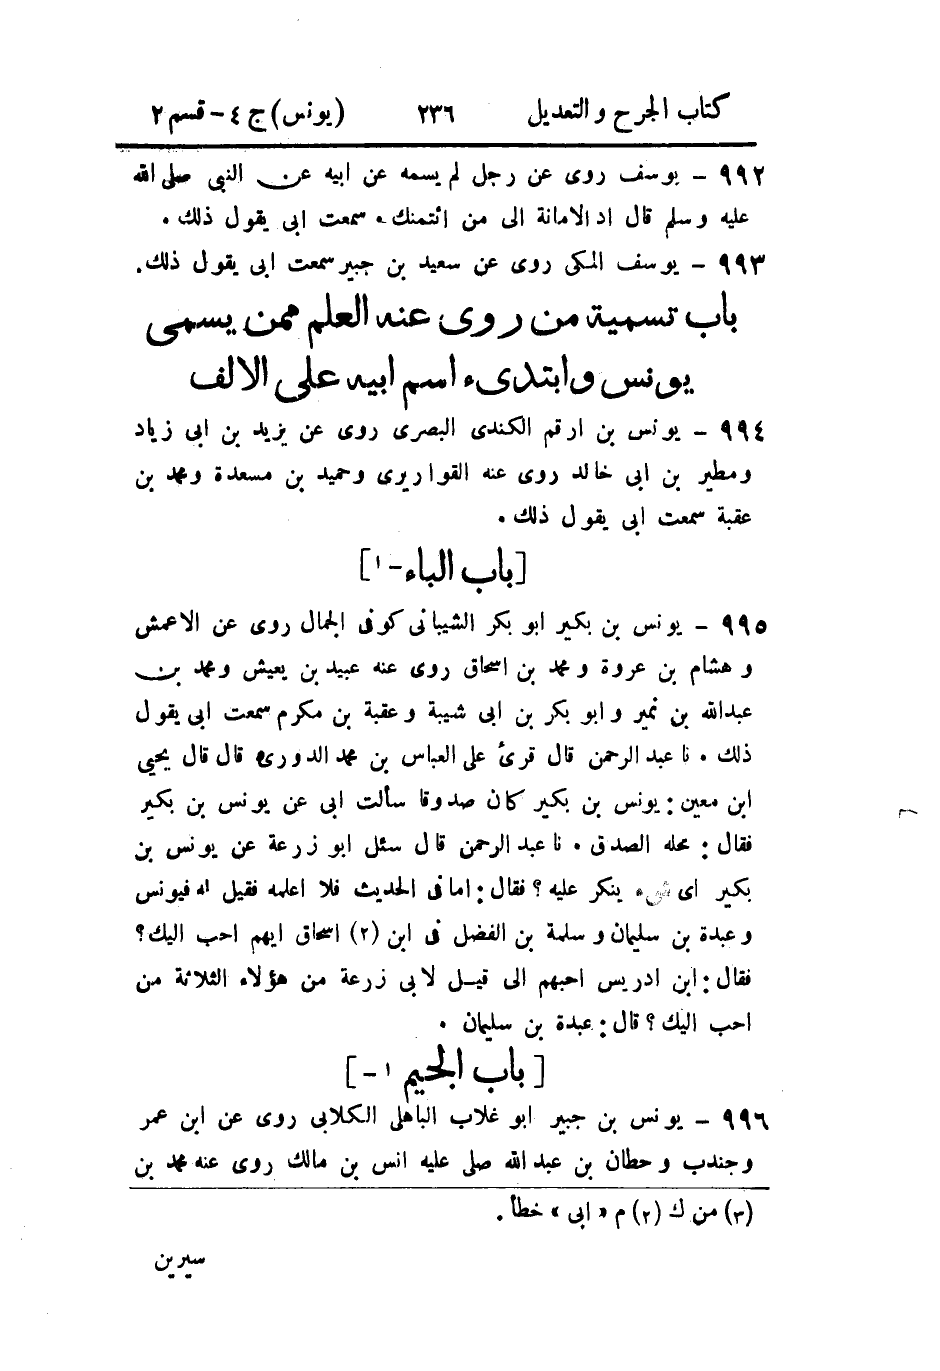 كتاب الجرح والتعديل ٢٣٦ (يونس) ج ٤ - قسم ٢
٩٩٢ - يوسف روى عن رجل لم يسمه عن ابيه عن النبي صلى الله
عليه وسلم قال اد الامانة الى من ائتمنك . سمعت ابي يقول ذلك .
٩٩٣ - يوسف المكى روى عن سعيد بن جبير سمعت ابى يقول ذلك .
باب تسمية من روى عنه العلم ممن يسمى
يونس وابتدىء اسم ابيه على الالف
٩٩٤ - يونس بن ارقم الكندى البصرى روى عن يزيد بن ابى زياد
ومطير بن ابى خالد روى عنه القواريرى وحميد بن مسعدة ومحمد بن
عقبة سمعت ابى يقول ذلك .
[باب الباء - ١]
٩٩٥ - يونس بن بكير ابو بكر الشيبانى كوفى الجمال روى عن الاعمش
وهشام بن عروة ومحمد بن اسحاق روى عنه عبيد بن يعيش ومحمد بن
عبدالله بن نمير وابو بكر بن ابى شيبة وعقبة بن مكرم سمعت ابى يقول
ذلك . نا عبد الرحمن قال قرئ على العباس بن محمد الدورى قال قال يحيى
ابن معين : يونس بن بكير كان صدوقا سألت ابى عن يونس بن بكير
فقال : محله الصدق . نا عبد الرحمن قال سئل ابو زرعة عن يونس بن
بكير اى شىء ينكر عليه ؟ فقال : اما فى الحديث فلا اعلمه فقيل له فيونس
وعبدة بن سليمان وسلمة بن الفضل فى ابن (٢) اسحاق ايهم احب اليك ؟
فقال : ابن ادريس احبهم الى قيل لابى زرعة من هؤلاء الثلاثة من
احب اليك ؟ قال : عبدة بن سليمان .
[باب الجيم ١ -]
٩٩٦ - يونس بن جبير ابو غلاب الباهلى الكلابى روى عن ابن عمر
وجندب وحطان بن عبد الله صلى عليه انس بن مالك روى عنه محمد بن
(٣) من ك (٢) م « ابى » خطأ .
سيرين